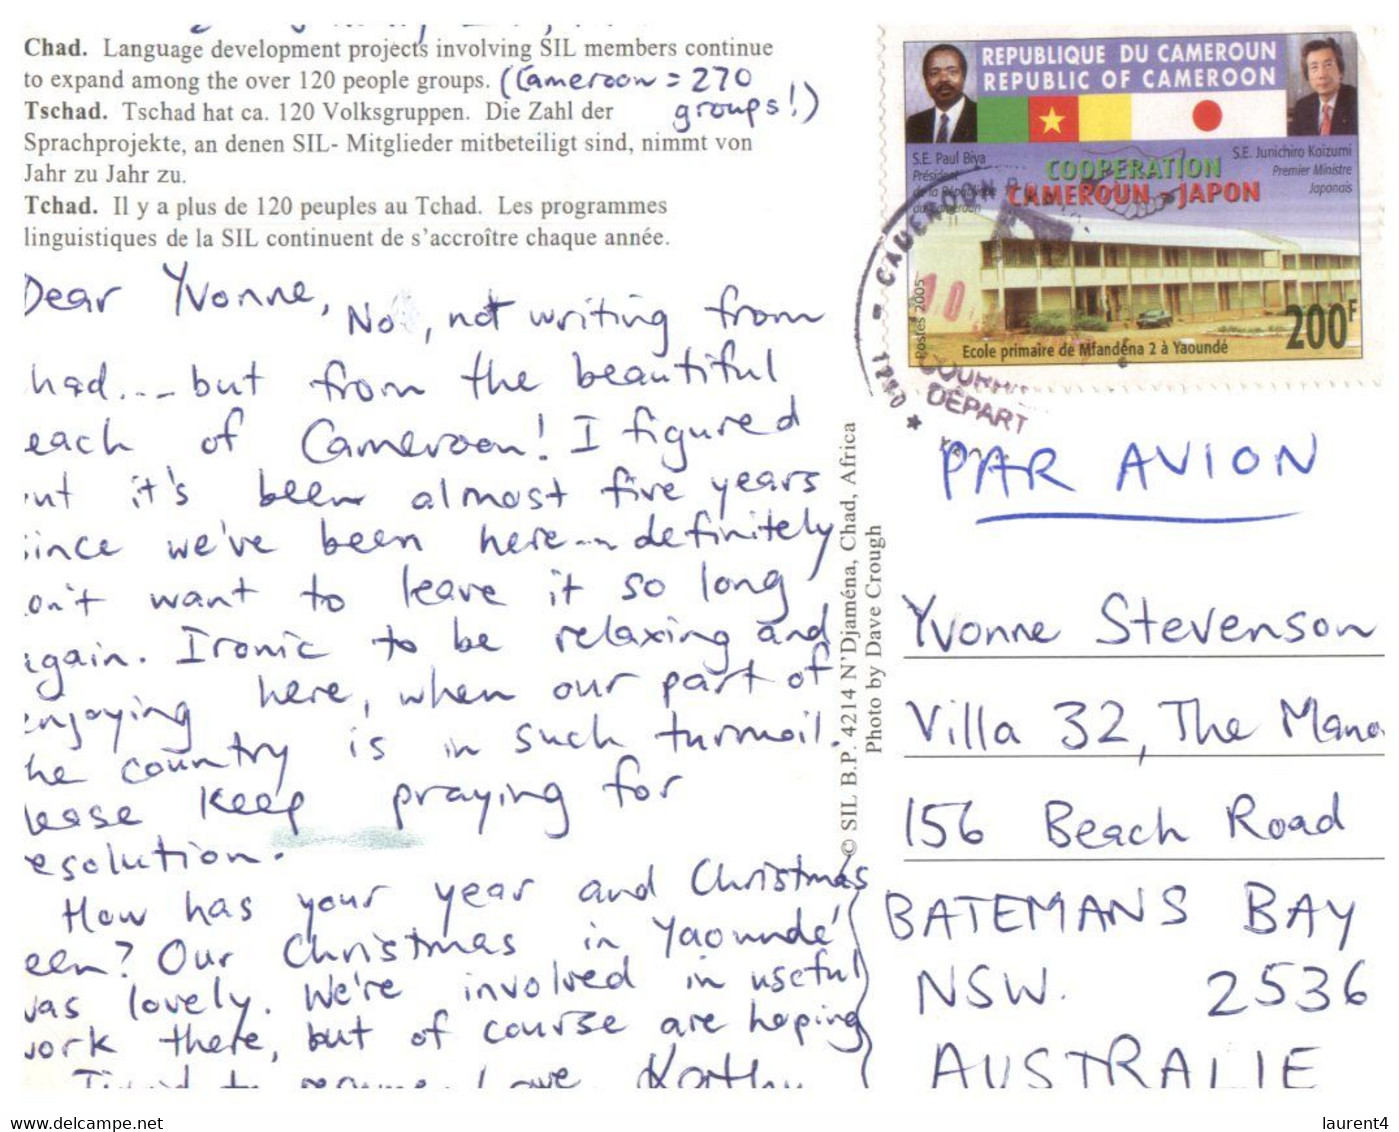 Chad. Language development projects involving SIL members continue
to expand among the over 120 people groups. (Cameroon = 270
groups!)
Tschad. Tschad hat ca. 120 Volksgruppen. Die Zahl der
Sprachprojekte, an denen SIL- Mitglieder mitbeteiligt sind, nimmt von
Jahr zu Jahr zu.
Tchad. Il y a plus de 120 peuples au Tchad. Les programmes
linguistiques de la SIL continuent de s'accroître chaque année.
Dear Yvonne,
No, not writing from
had... but from the beautiful
each of Cameroon! I figured
ut it's been almost five years
ince we've been here... definitely
on't want to leave it so long
again. Ironic to be relaxing and
enjoying here, when our part of
he country is in such turmoil.
lease keep praying for
esolution.
How has your year and Christmas
een? Our Christmas in Yaoundé
was lovely. We're involved in useful
work there, but of course are hoping
to resume. Love,
© SIL B.P. 4214 N'Djaména, Chad, Africa
Photo by Dave Crough
REPUBLIQUE DU CAMEROUN
REPUBLIC OF CAMEROON
S.E. Paul Biya
Président
de la République
du Cameroun
S.E. Junichiro Koizumi
Premier Ministre
Japonais
COOPERATION
CAMEROUN - JAPON
Postes 2005
200F
Ecole primaire de Mfandéna 2 à Yaoundé
CAMEROUN
10
COURRIER
DÉPART
PAR AVION
Yvonne Stevenson
Villa 32, The Mano
156 Beach Road
BATEMANS BAY
NSW. 2536
AUSTRALIE
www.delcampe.net
laurent4